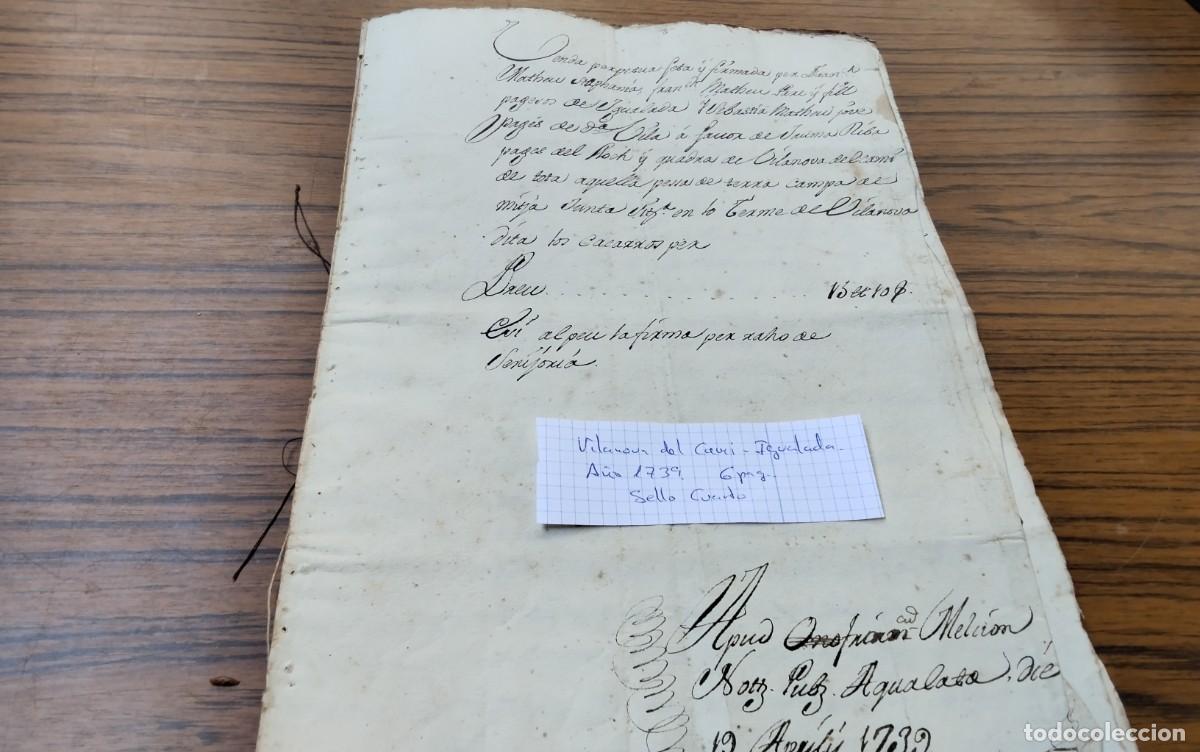 Venda perpetua feta ÿ firmada per Fran.ch
Matheu Fran.ch Matheu Pare ÿ fill
pagesos de Igualada Y Sebastiá Matheu jove
pagés de d.a Vila á favor de Riba
pages del Roch ÿ quadra de Vilanova del
de tota aquella pessa de terra campa de
mitja Junta en lo Terme de Vilanova
dita los per
Preu . . . . . . . . . . . . . . . 
al peu la firma per rahó de
Senÿoria.
Vilanova del Camí - Igualada.
Año 1739 6 pag.
Sello Cuarto
Apud Melcion
Nott. Pub. Aqualata, die
19 Aprilÿ 1739
todocoleccion